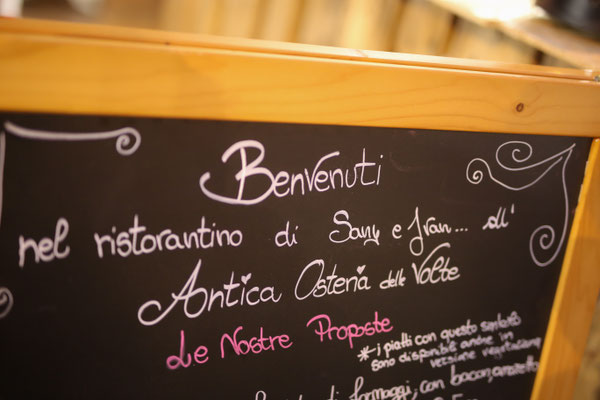 Benvenuti
nel ristorantino di Sany e Ivan... all'
Antica Osteria delle Volte
Le Nostre Proposte
*-i piatti con questo simbolo
sono disponibili anche in
versione vegetariana
formaggi, con bacon,